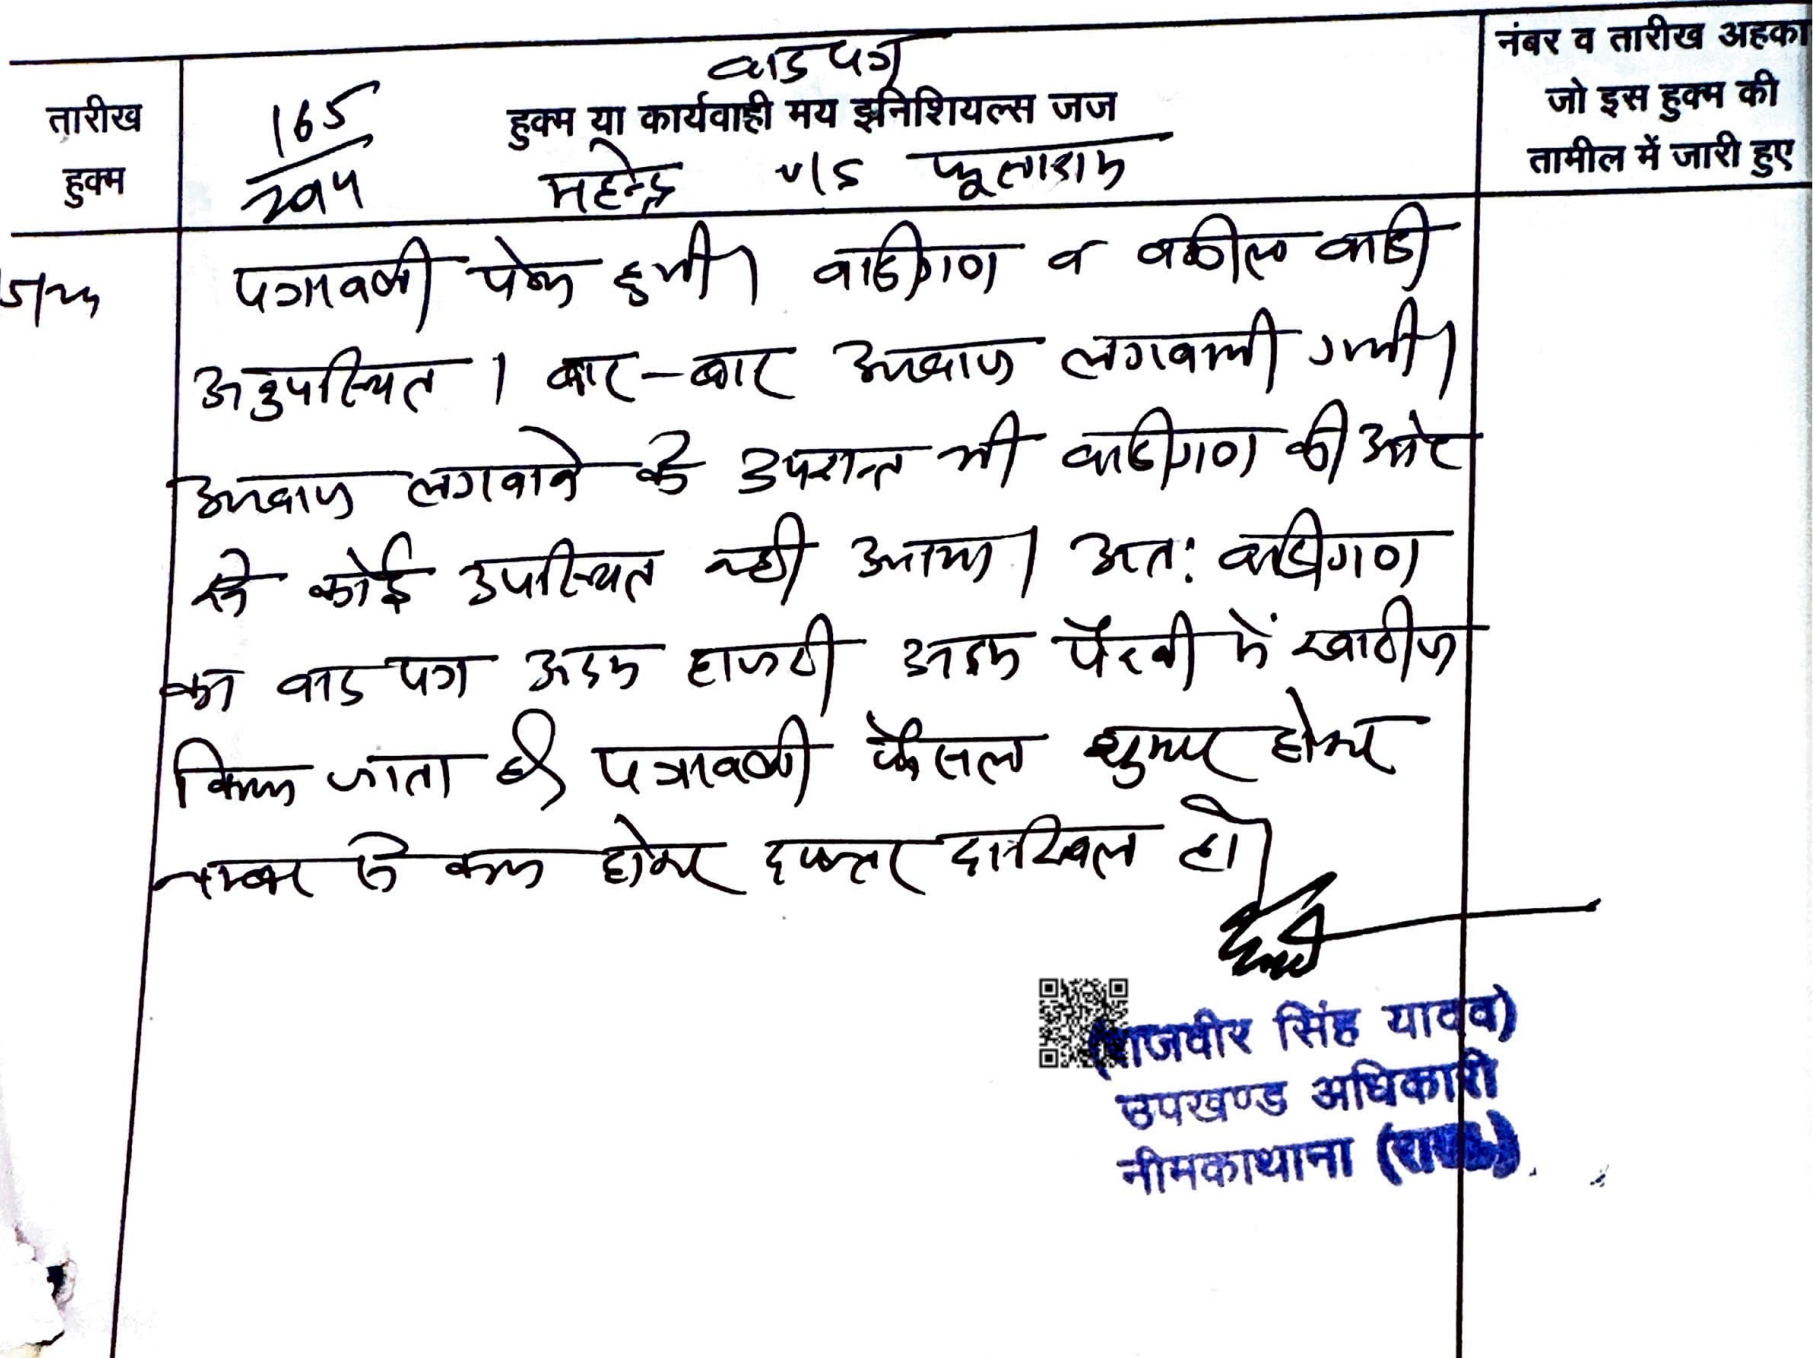 वाद पत्र
नंबर व तारीख अहका
तारीख
हुक्म या कार्यवाही मय इनिशियल्स जज
जो इस हुक्म की
हुक्म
165
महेन्द्र v/s फूलाराम
तामील में जारी हुए
पत्रावली पेश हुयी। वादीगण व वकील वादी
अनुपस्थित। बार-बार आवाज लगवायी गयी।
आवाज लगवाने के उपरान्त भी वादीगण की ओर
से कोई उपस्थित नही आया। अतः वादीगण
का वाद पत्र अदम हाजरी अदम पैरवी में खारीज
किया जाता है। पत्रावली फैसल शुमार होकर
नम्बर से कम होकर दफ्तर दाखिल हो।
(राजवीर सिंह यादव)
उपखण्ड अधिकारी
नीमकाथाना (राज.)